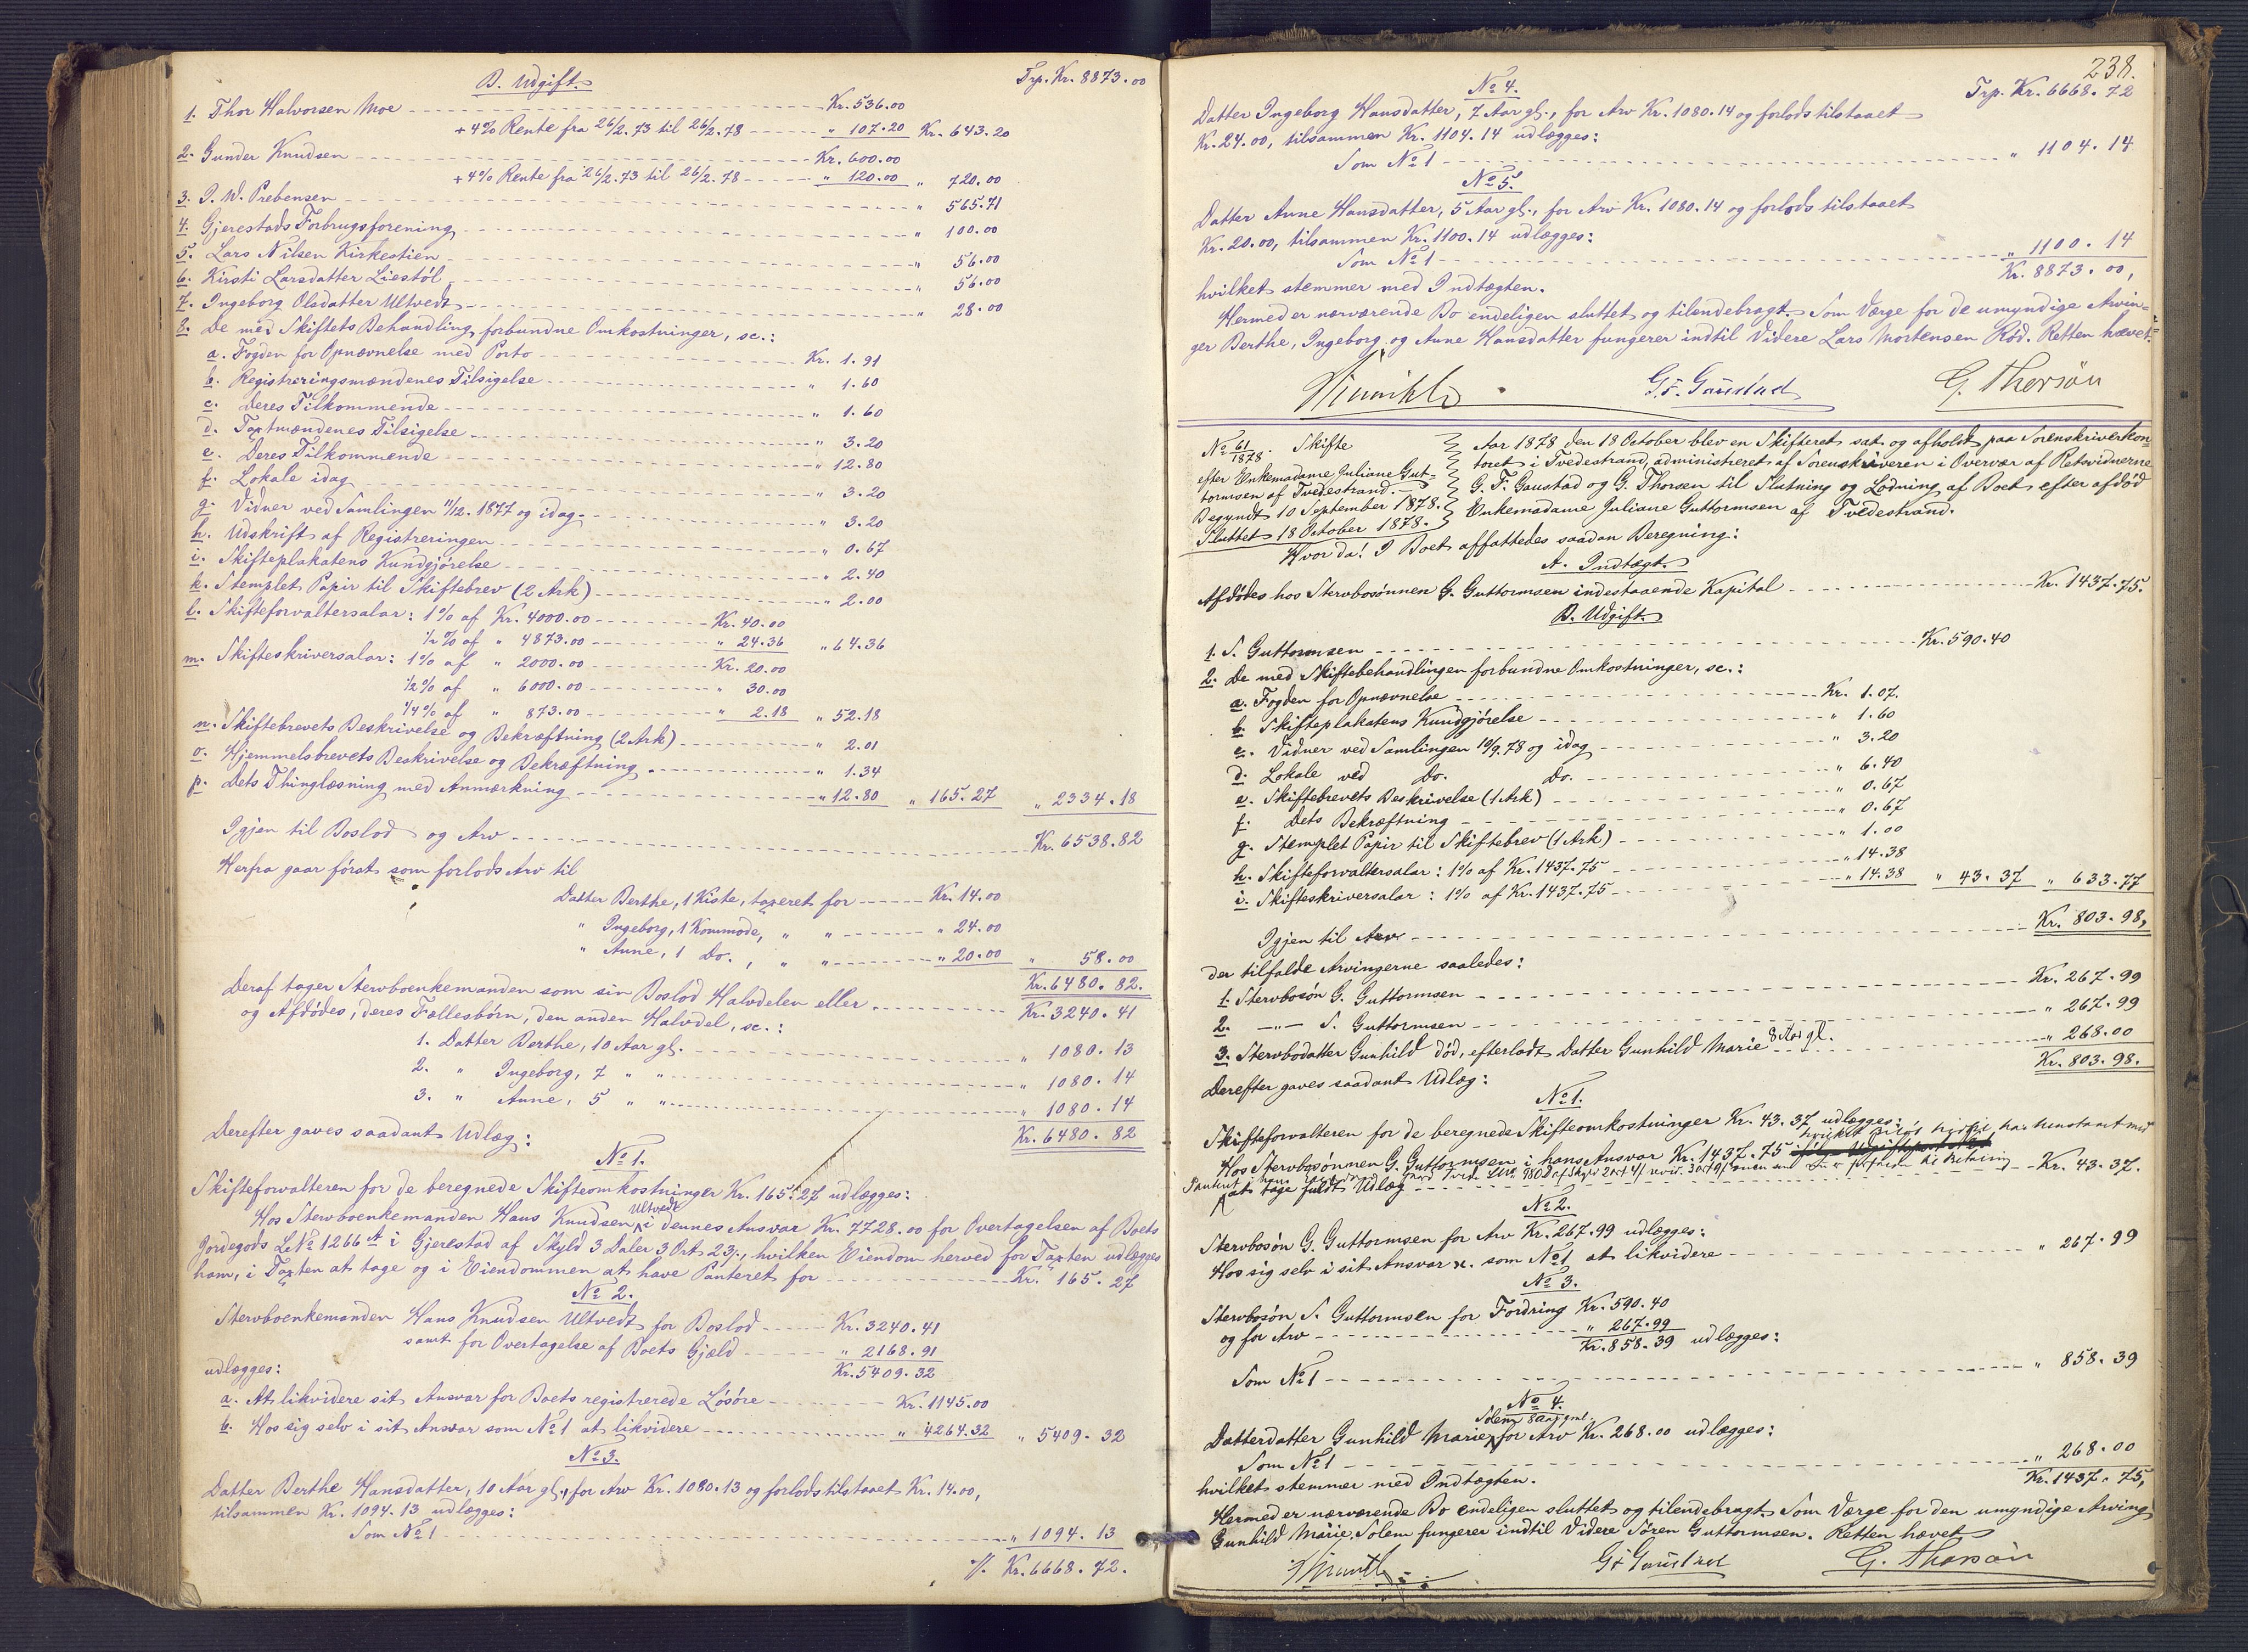 B. Udgift. Trp. Kr. 8873.00
1. Thor Halvorsen Moe Kr. 536.00
+ 4% Rente fra 26/2.73 til 26/2.78 " 107.20 Kr. 643.20
2. Gunder Knudsen Kr. 600.00
+ 4% Rente fra 26/2.73 til 26/2.78 " 120.00 " 720.00
3. I. W. Prebensen " 565.71
4. Gjerestads Forbrugsforening " 100.00
5. Lars Nilsen Kirkestien " 56.00
6. Kirsti Larsdatter Liestöl " 56.00
7. Ingeborg Olsdatter Ultvedt " 28.00
8. De med Skiftets Behandling forbundne Omkostninger, sc.:
a. Fogden for Opnævnelse med Porto Kr. 1.91
b. Registreringsmændenes Tilsigelse " 1.60
c. Deres Tilkommende " 1.60
d. Taxtmændenes Tilsigelse " 3.20
e. Deres Tilkommende " 12.80
f. Lokale idag " 3.20
g. Vidner ved Samlingen 11/12.1877 og idag " 3.20
h. Udskrift af Registreringen " 0.67
i. Skifteplakatens Kundgjörelse " 2.40
k. Stemplet Papir til Skiftebrev (2 Ark) " 2.00
l. Skifteforvaltersalar: 1% af Kr. 4000.00 Kr. 40.00
1/2% af " 4873.00 " 24.36 " 64.36
m. Skifteskriversalar: 1% af " 2000.00 Kr. 20.00
1/2% af " 6000.00 " 30.00
1/4% af " 873.00 " 2.18 " 52.18
n. Skiftebrevets Beskrivelse og Bekræftning (2 Ark) " 2.01
o. Hjemmelsbrevets Beskrivelse og Bekræftning " 1.34
p. Dets Thinglæsning med Anmærkning " 12.80 " 165.27 " 2334.18
Igjen til Boslod og Arv Kr. 6538.82
Herfra gaar först som forlods Arv til
Datter Berthe, 1 Kiste, taxeret for Kr. 14.00
" Ingeborg, 1 Kommode, " " " 24.00
" Anne, 1 Do., " " " 20.00 " 58.00
Kr. 6480.82.
Deraf tager Stervboenkemanden som sin Boslod Halvdelen eller Kr. 3240.41
og Afdödes, deres Fællesbörn, den anden Halvdel, sc.:
1. Datter Berthe, 10 Aar gl. " 1080.13
2. " Ingeborg, 7 " " " 1080.14
3. " Anne, 5 " " " 1080.14
Kr. 6480.82
Derefter gaves saadant Udlæg:
No 1.
Skifteforvalteren for de beregnede Skifteomkostninger Kr. 165.27 udlægges:
Hos Stervboenkemanden Hans Knudsen Ultvedt i dennes Ansvar Kr. 7728.00 for Overtagelsen af Boets
Jordegods LNo 1266 A i Gjerestad af Skyld 3 Daler 3 Ort 23 /., hvilken Eiendom herved for Taxten udlægges
ham, i Taxten at tage og i Eiendommen at have Panteret for Kr. 165.27
No 2.
Stervboenkemanden Hans Knudsen Ultvedt for Boslod Kr. 3240.41
samt for Overtagelse af Boets Gjæld " 2168.91
udlægges: Kr. 5409.32
a. At likvidere sit Ansvar for Boets registrerede Lösöre Kr. 1145.00
b. Hos sig selv i sit Ansvar som No 1 at likvidere " 4264.32 " 5409.32
No 3.
Datter Berthe Hansdatter, 10 Aar gl., for Arv Kr. 1080.13 og forlods tilstaaet Kr. 14.00,
tilsammen Kr. 1094.13 udlægges:
Som No 1 " 1094.13
Kr. 6668.72.
238.
No 4. Trp. Kr. 6668.72
Datter Ingeborg Hansdatter, 7 Aar gl., for Arv Kr. 1080.14 og forlods tilstaaet
Kr. 24.00, tilsammen Kr. 1104.14 udlægges:
Som No 1 " 1104.14
No 5.
Datter Anne Hansdatter, 5 Aar gl., for Arv Kr. 1080.14 og forlods tilstaaet
Kr. 20.00, tilsammen Kr. 1100.14 udlægges:
Som No 1 " 1100.14
Kr. 8873.00,
hvilket stemmer med Indtægten.
Hermed er nærværende Bo endeligen sluttet og tilendebragt. Som Værge for de umyndige Arvin-
ger Berthe, Ingeborg og Anne Hansdatter fungerer indtil Videre Lars Mortensen Röd. Retten hævet.
G. F. Gaustad G. Thorsen
No 61/1878. Skifte
efter Enkemadame Juliane Gut-
tormsen af Tvedestrand.
Begyndt 10 September 1878.
Sluttet 18 October 1878.
Aar 1878 den 18 October blev en Skifteret sat og afholdt paa Sorenskriverkon-
toret i Tvedestrand, administreret af Sorenskriveren i Overvær af Retsvidnerne
G. F. Gaustad og G. Thorsen til Slutning og Lodning af Boet efter afdöd
Enkemadame Juliane Guttormsen af Tvedestrand.
Hvor da! I Boet affattedes saadan Beregning:
A. Indtægt.
Afdödes hos Stervbosönnen G. Guttormsen indestaaende Kapital Kr. 1437.75.
B. Udgift.
1. S. Guttormsen Kr. 590.40
2. De med Skiftebehandlingen forbundne Omkostninger, sc.:
a. Fogden for Opnævnelse Kr. 1.07.
b. Skifteplakatens Kundgjörelse " 1.60
c. Vidner ved Samlingen 10/9.78 og idag " 3.20
d. Lokale ved Do. Do. " 6.40
e. Skiftebrevets Beskrivelse (1 Ark) " 0.67
f. Dets Bekræftning " 0.67
g. Stemplet Papir til Skiftebrev (1 Ark) " 1.00
h. Skifteforvaltersalar: 1% af Kr. 1437.75 " 14.38
i. Skifteskriversalar: 1% af Kr. 1437.75 " 14.38 " 43.37 " 633.77
Igjen til Arv Kr. 803.98,
der tilfalde Arvingerne saaledes:
1. Stervbosön G. Guttormsen Kr. 267.99
2. —"— S. Guttormsen " 267.99
3. Stervbodatter Gunhild död, efterladt Datter Gunhild Marie 8 Aar gl. " 268.00
Kr. 803.98.
Derefter gaves saadant Udlæg:
No 1.
Skifteforvalteren for de beregnede Skifteomkostninger Kr. 43.37 udlægges:
Hos Stervbosönnen G. Guttormsen i hans Ansvar Kr. 1437.75
at tage fuldt Udlæg Kr. 43.37.
No 2.
Stervbosön G. Guttormsen for Arv Kr. 267.99 udlægges:
Hos sig selv i sit Ansvar &. som No 1 at likvidere " 267.99
No 3.
Stervbosön S. Guttormsen for Fordring Kr. 590.40
og for Arv " 267.99
Kr. 858.39 udlægges:
Som No 1 " 858.39
No 4.
Solem 8 Aar gml.
Datterdatter Gunhild Marie for Arv Kr. 268.00 udlægges:
Som No 1 " 268.00
Kr. 1437.75,
hvilket stemmer med Indtægten.
Hermed er nærværende Bo endeligen sluttet og tilendebragt. Som Værge for den umyndige Arving
Gunhild Marie Solem fungerer indtil Videre Sören Guttormsen. Retten hævet
G. F. Gaustad G. Thorsen